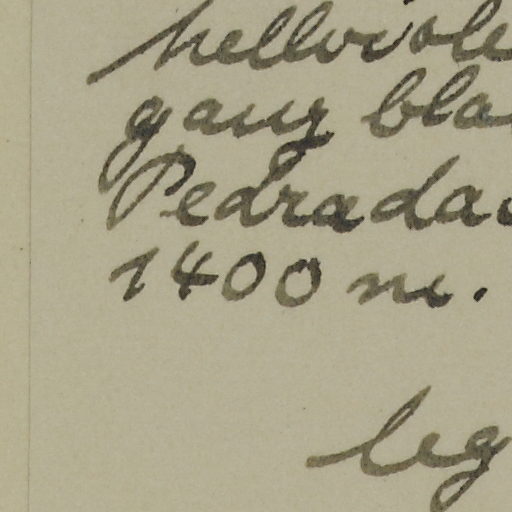 hellviole
ganz bla
Pedrada
1400 m.
leg